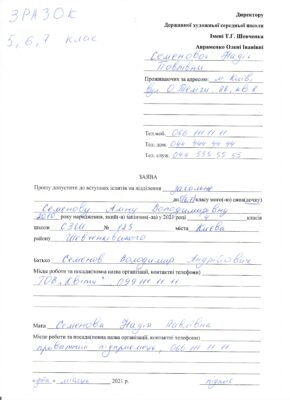 ЗРАЗОК
5, 6, 7 клас
Директору
Державної художньої середньої школи
Імені Т.Г. Шевченка
Авраменко Олені Іванівні
Семенової Надії
Павлівни
Проживаючих за адресою: м. Київ,
вул. О. Теліги
Тел.моб. 066 111 11 11
Тел. дом. 044 444 44 44
Тел. служ. 044 555 55 55
ЗАЯВА
Прошу допустити до вступних іспитів на відділення загальне
до класу мого(-ю) сина(дочку)
Семенову Анну Володимирівну
2010 року народження, який(-а) закінчив(-ла) у 2021 році 4 класів
школи СЗШ № 125 міста Києва
району Шевченківського
Батько Семенов Володимир Андрійович
Місце роботи та посада(повна назва організації, контактні телефони)
ТОВ „Квіти” 099 111 11 11
Мати Семенова Надія Павлівна
Місце роботи та посада(повна назва організації, контактні телефони)
приватний підприємець, 066 111 11 11
« дата » місяць 2021 р. підпис